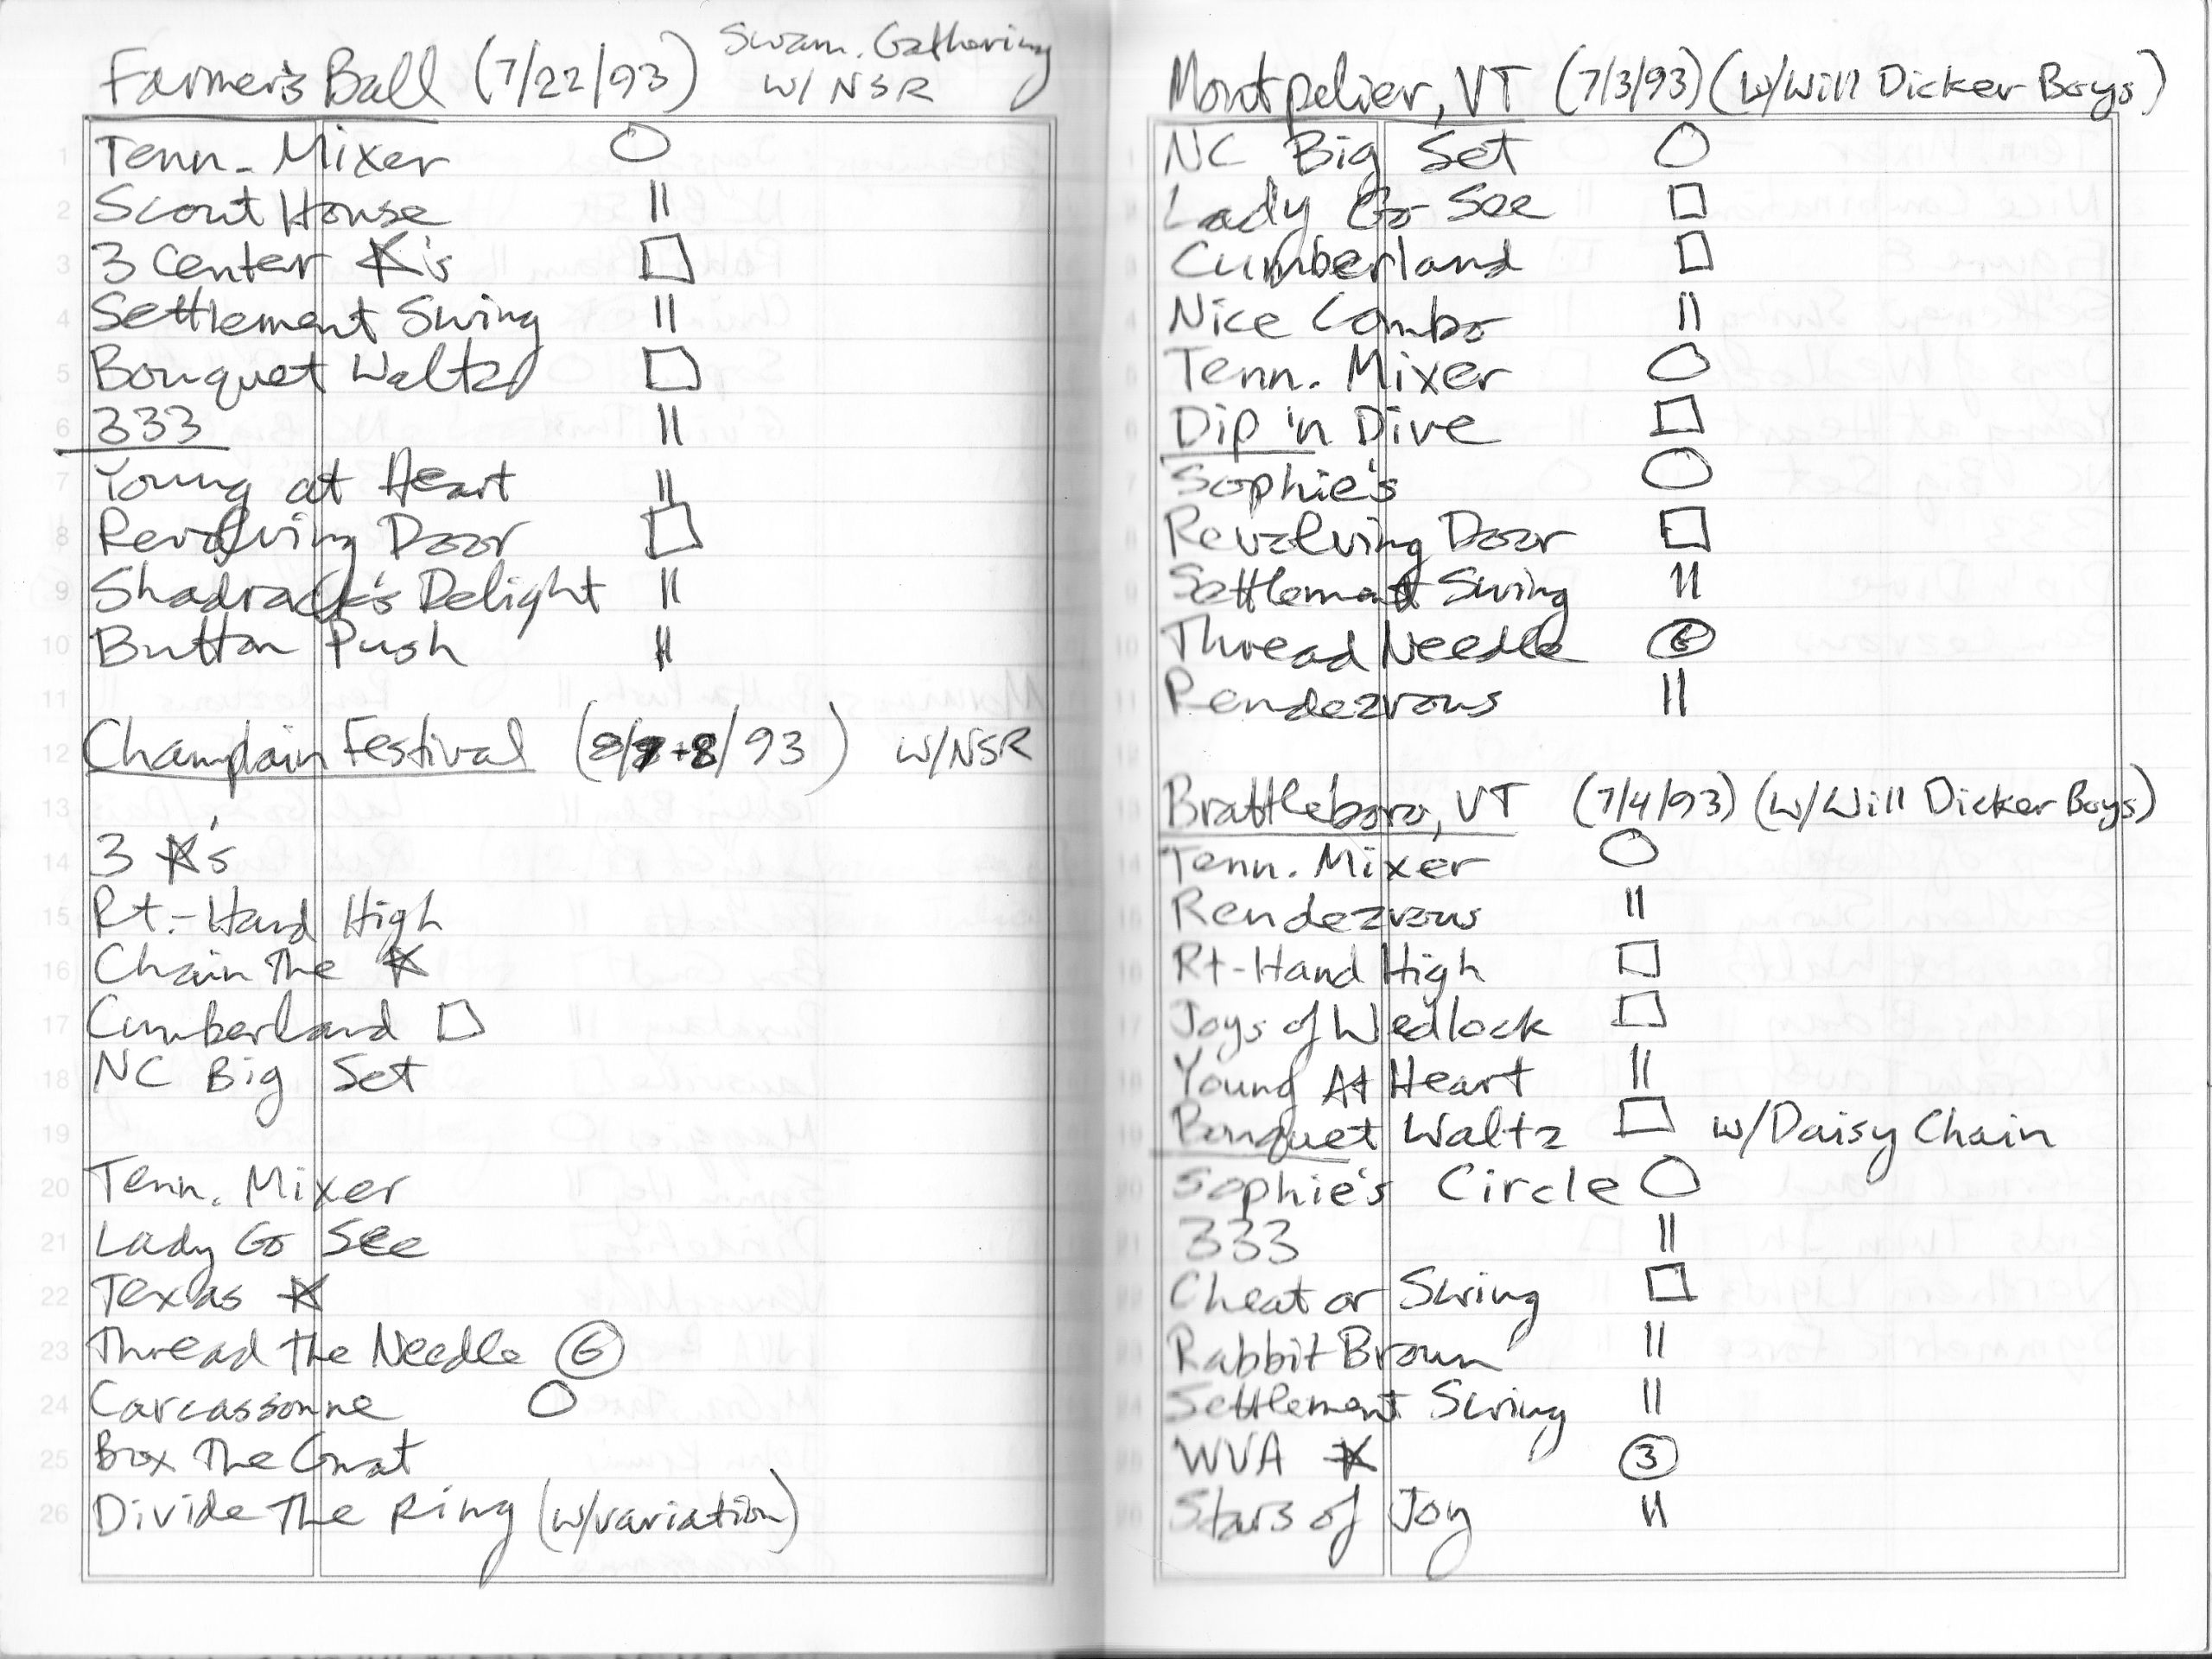 Farmer's Ball (7/22/93) Swan. Gathering
W/NSR
Tenn. Mixer ○
1
Scout House ||
2
3 Center ☆'s □
3
Settlement Swing ||
4
Bouquet Waltz □
5
333 ||
6
Young at Heart ||
7
Revolving Door □
8
Shadrack's Delight ||
9
Button Push ||
10
11
Champlain Festival (8/7+8/93) W/NSR
12
13
3 ☆'s
14
Rt.-Hand High
15
Chain The ☆
16
Cumberland □
17
NC Big Set
18
19
Tenn. Mixer
20
Lady Go See
21
Texas ☆
22
Thread the Needle ⑥
23
Carcassonne ○
24
Box The Gnat
25
Divide The Ring (w/variation)
26
Montpelier, VT (7/3/93) (W/Will Dicker Boys)
NC Big Set ○
Lady Go-See □
Cumberland □
Nice Combo ||
Tenn. Mixer ○
Dip 'n Dive □
Sophie's ○
Revolving Door □
Settlement Swing ||
Thread Needle ⑥
Rendezvous ||
Brattleboro, VT (7/4/93) (W/Will Dicker Boys)
Tenn. Mixer ○
Rendezvous ||
Rt-Hand High □
Joys of Wedlock □
Young At Heart ||
Bouquet Waltz □ w/Daisy Chain
Sophie's Circle ○
333 ||
Cheat or Swing □
Rabbit Brown ||
Settlement Swing ||
WVA ☆ ③
Stars of Joy ||